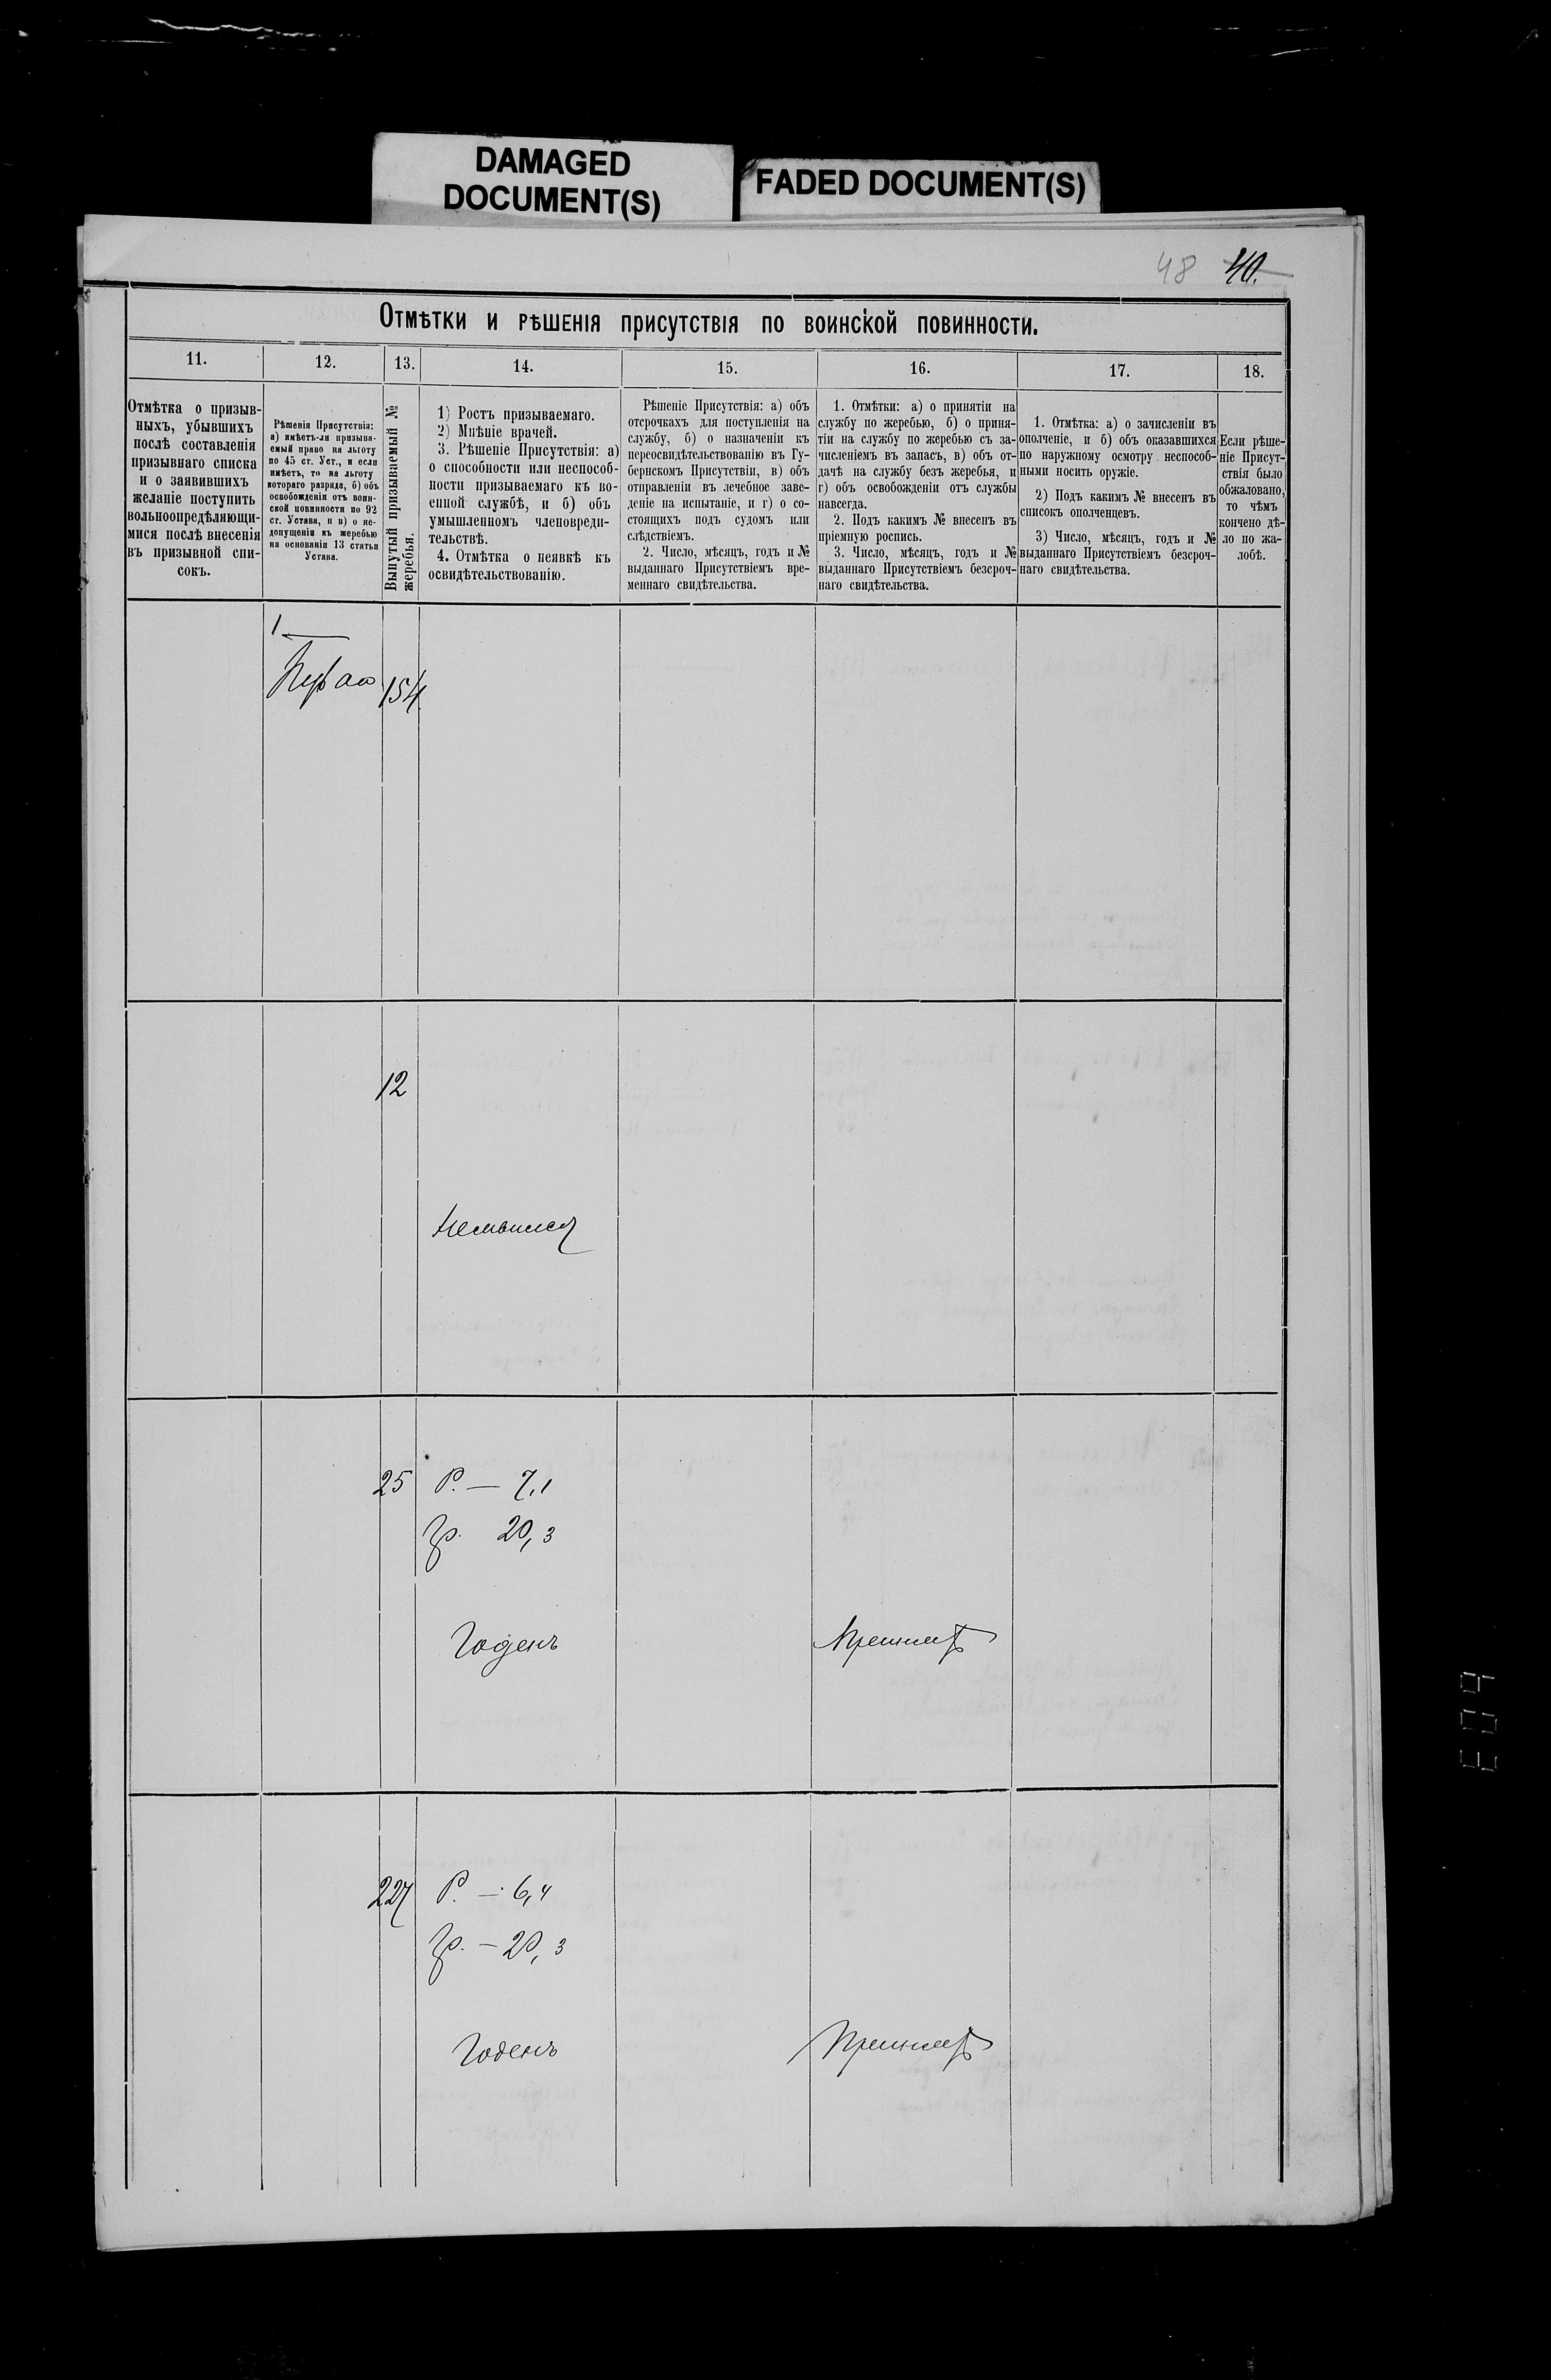 DAMAGED
DOCUMENT(S)
FADED DOCUMENT(S)
48 40.
Отмѣтки и рѣшенія присутствія по воинской повинности.
11. 12. 13. 14. 15. 16. 17. 18.
Отмѣтка о призыв-
ныхъ, убывшихъ
послѣ составленія
призывнаго списка
и о заявившихъ
желаніе поступить
вольноопредѣляющи-
мися послѣ внесенія
въ призывной спи-
сокъ.
Рѣшенія Присутствія:
а) имѣетъ-ли призыва-
емый право на льготу
по 45 ст. Уст., и если
имѣетъ, то на льготу
котораго разряда, б) объ
освобожденіи отъ воин-
ской повинности по 92
ст. Устава, и в) о не-
допущеніи къ жеребью
на основаніи 13 статьи
Устава.
Вынутый призываемый №
жеребья.
1) Ростъ призываемаго.
2) Мнѣніе врачей.
3. Рѣшеніе Присутствія: а)
о способности или неспособ-
ности призываемаго къ во-
енной службѣ, и б) объ
умышленномъ членовреди-
тельствѣ.
4. Отмѣтка о неявкѣ къ
освидѣтельствованію.
Рѣшеніе Присутствія: а) объ
отсрочкахъ для поступленія на
службу, б) о назначеніи къ
переосвидѣтельствованію въ Гу-
бернскомъ Присутствіи, в) объ
отправленіи въ лечебное заве-
деніе на испытаніе, и г) о со-
стоящихъ подъ судомъ или
слѣдствіемъ.
2. Число, мѣсяцъ, годъ и №
выданнаго Присутствіемъ вре-
меннаго свидѣтельства.
1. Отмѣтки: а) о принятіи на
службу по жеребью, б) о приня-
тіи на службу по жеребью съ за-
численіемъ въ запасъ, в) объ от-
дачѣ на службу безъ жеребья, и
г) объ освобожденіи отъ службы
навсегда.
2. Подъ какимъ № внесенъ въ
пріемную роспись.
3. Число, мѣсяцъ, годъ и №
выданнаго Присутствіемъ безсроч-
наго свидѣтельства.
1. Отмѣтка: а) о зачисленіи въ
ополченіе, и б) объ оказавшихся
по наружному осмотру неспособ-
ными носить оружіе.
2) Подъ какимъ № внесенъ въ
списокъ ополченцевъ.
3) Число, мѣсяцъ, годъ и №
выданнаго Присутствіемъ безсроч-
наго свидѣтельства.
Если рѣше-
ніе Присут-
ствія было
обжаловано,
то чѣмъ
кончено дѣ-
ло по жа-
лобѣ.
1
154
12
Неявился
25 Р. — 7,1
Гр. 20,3
Годенъ Принятъ
227 Р. — 6,4
Гр. — 20,3
Годенъ Принятъ
E09